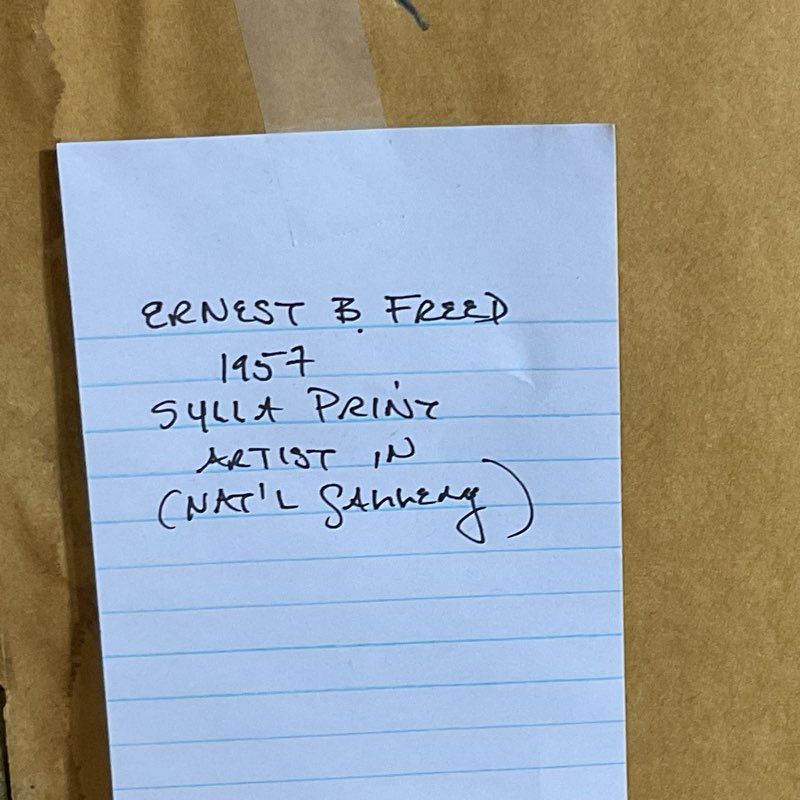 ERNEST B. FREED
1957
SYLLA PRINT
ARTIST IN
(NAT'L GALLERY)